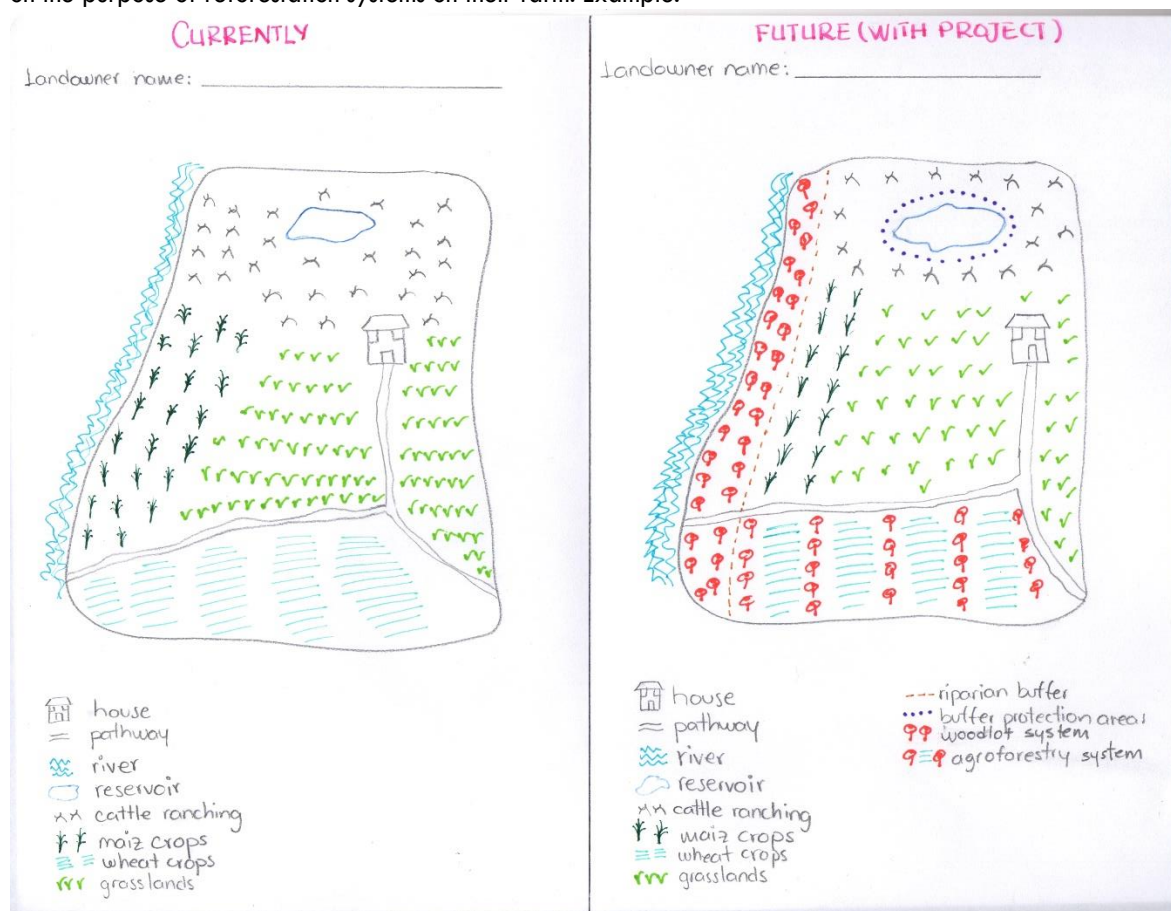 on the purpose of reforestation systems on their farm. Example:
CURRENTLY
Landowner name:
house
pathway
river
reservoir
cattle ranching
maiz crops
wheat crops
grasslands
FUTURE (WITH PROJECT)
Landowner name:
house
pathway
river
reservoir
cattle ranching
maiz crops
wheat crops
grasslands
riparian buffer
buffer protection areas
woodlot system
agroforestry system